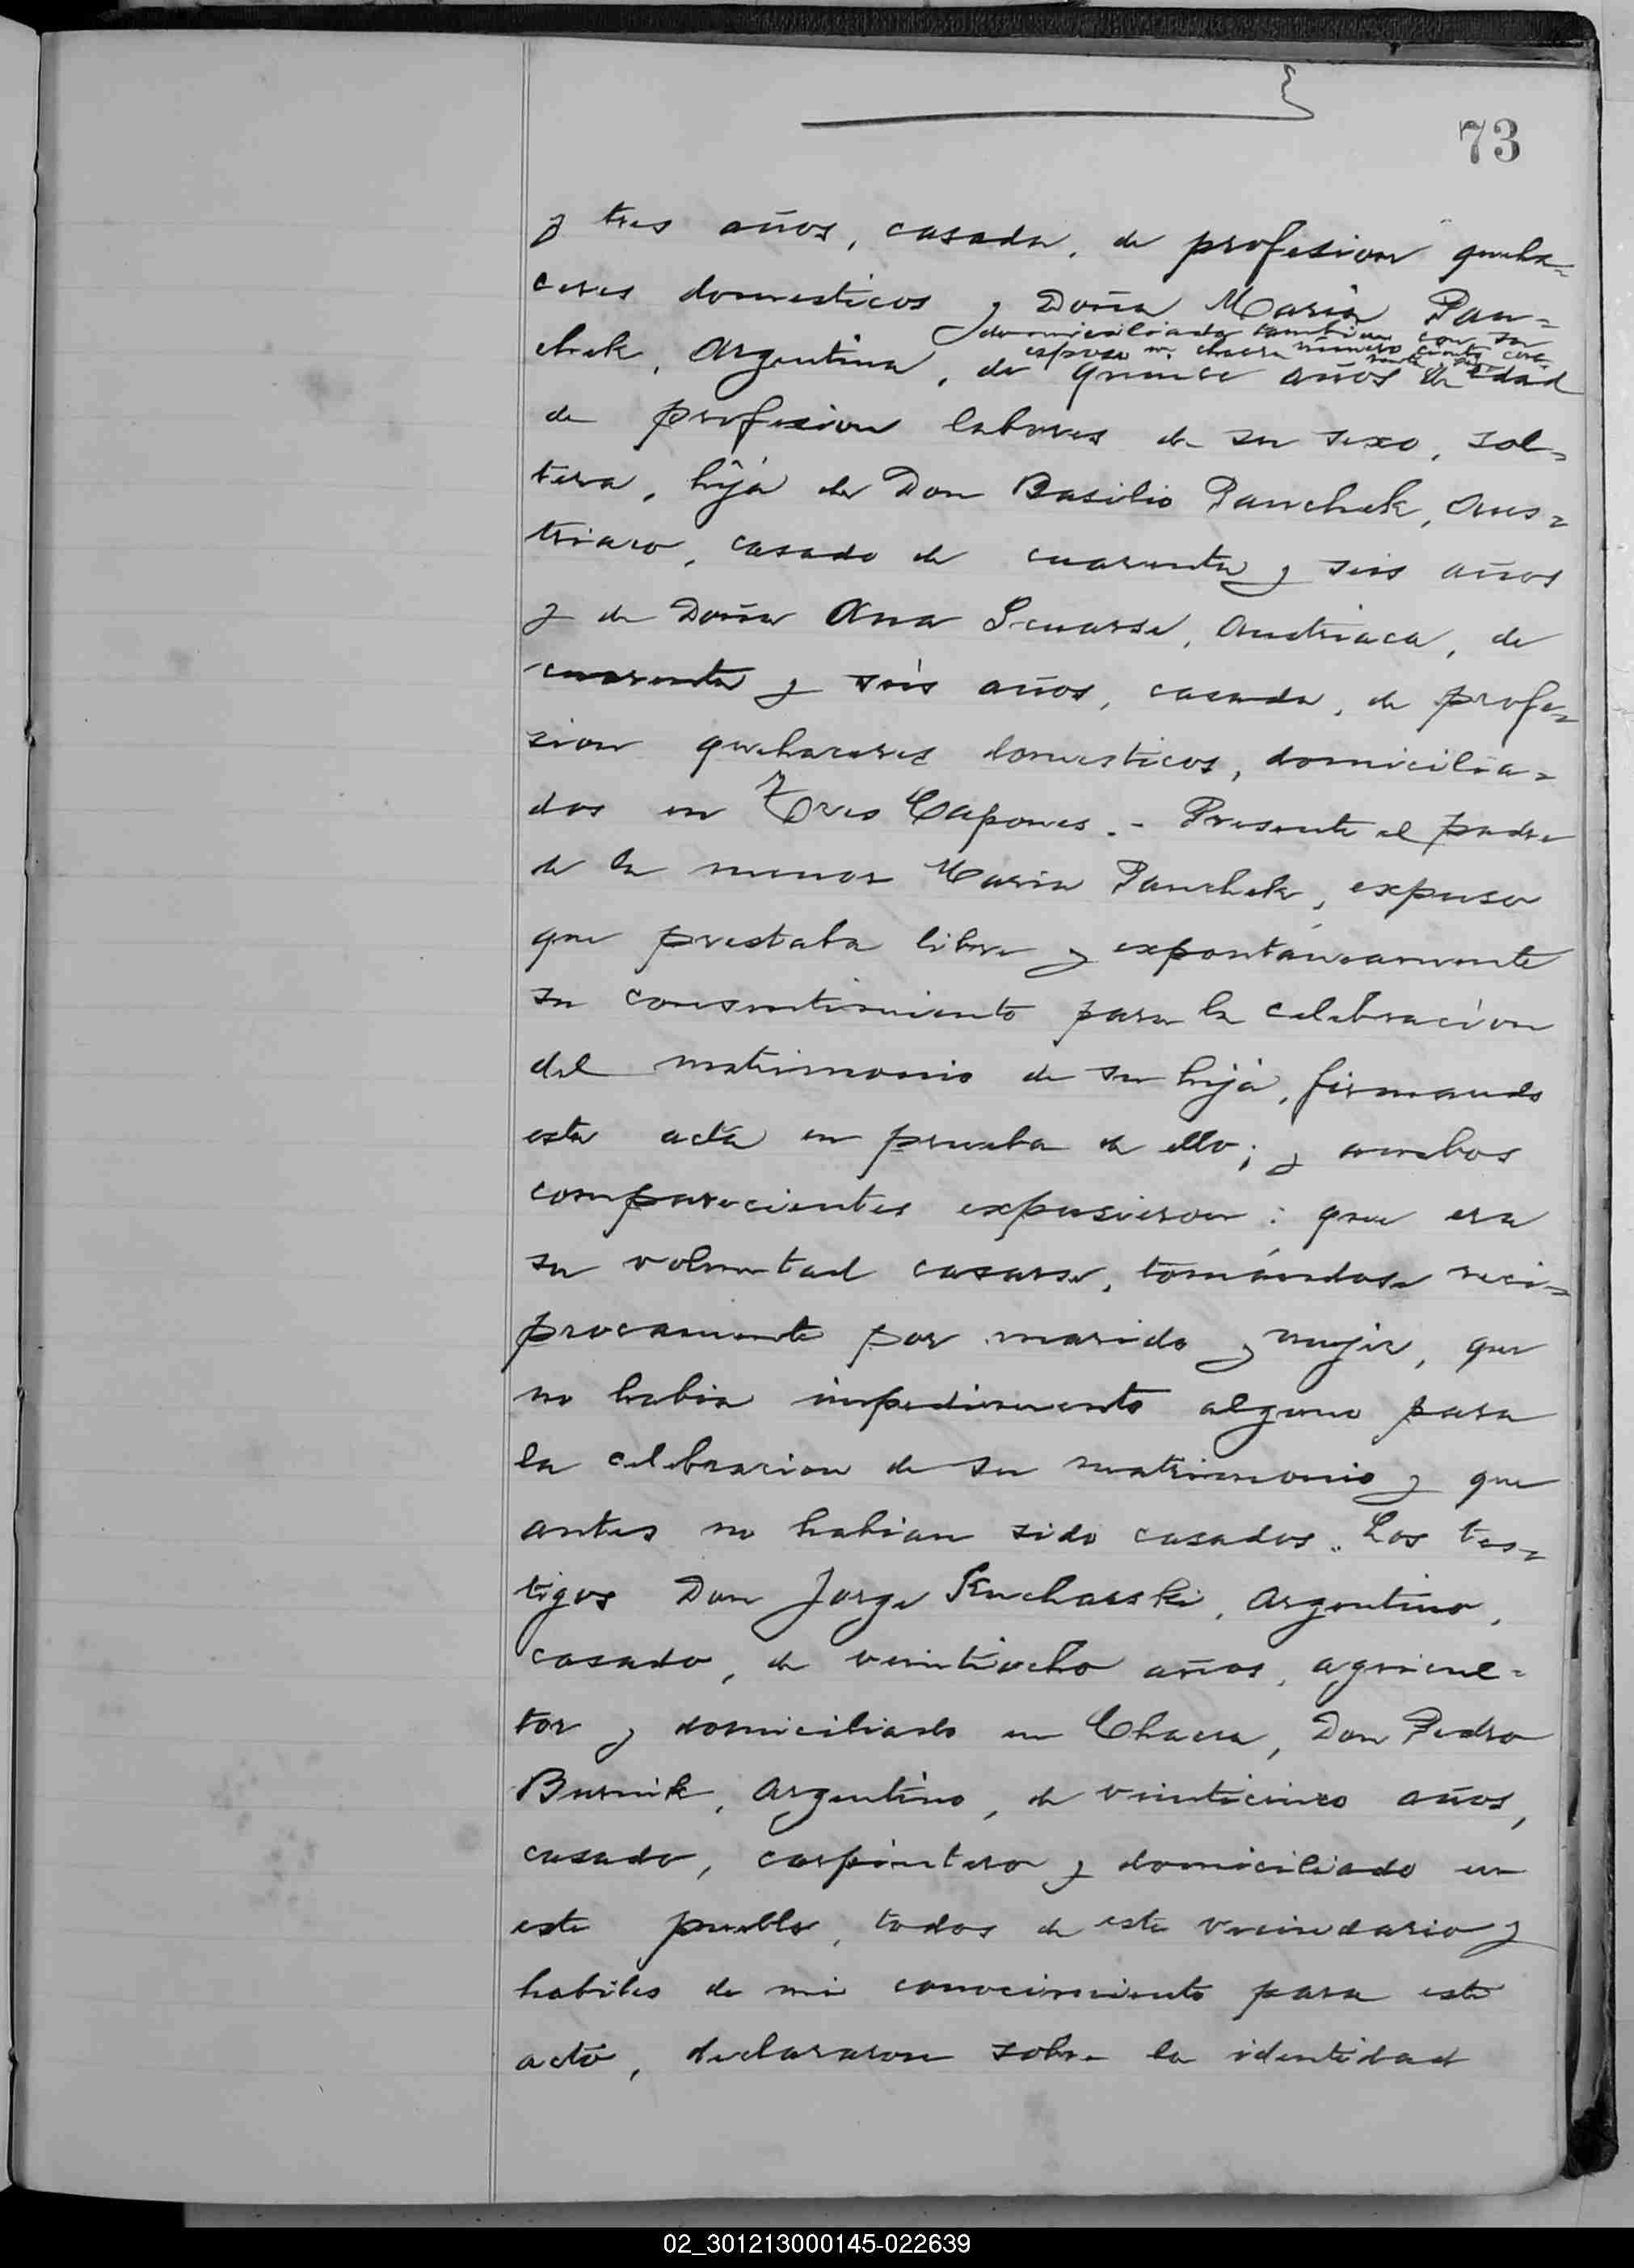 73
y tres años, casada, de profesion queha=
ceres domesticos y Doña Maria Pan=
domiciliada tambien con su
esposo en chacra número ciento
chek, Argentina, de quince años de edad
de profesion labores de su sexo, sol=
tera, hija de Don Basilio Panchek, Aus=
triaco, casado de cuarenta y seis años
y de Doña Ana Scuarse, Austriaca, de
cuarenta y seis años, casada, de profe=
sion quehaceres domesticos, domicilia=
dos en Tres Capones.- Presente el padre
de la menor Maria Panchek, expuso
que prestaba libre y expontáneamente
su consentimiento para la celebracion
del matrimonio de su hija, firmando
esta acta en prueba de ello; y ambos
comparecientes expusieron: que era
su voluntad casarse, tomándose reci=
procamente por marido y mujer, que
no habia impedimento alguno para
la celebracion de su matrimonio y que
antes no habian sido casados. Los tes=
tigos Don Jorge Kucharski, Argentino,
casado, de veintiocho años, agricul=
tor y domiciliado en Chacra, Don Pedro
Burnik, Argentino, de veinticinco años,
casado, carpintero y domiciliado en
este pueblo, todos de este vecindario y
habiles de mi conocimiento para este
acto, declararon sobre la identidad
02_301213000145-022639